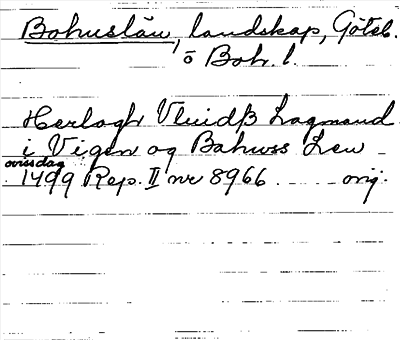 Bohuslän, landskap, Göteb.
o Boh. l.
Herlogh Vluidß Lagmand
i Vigen og Bahwss Lew
ovissdag
1499 Rep. II nr 8966 orig.